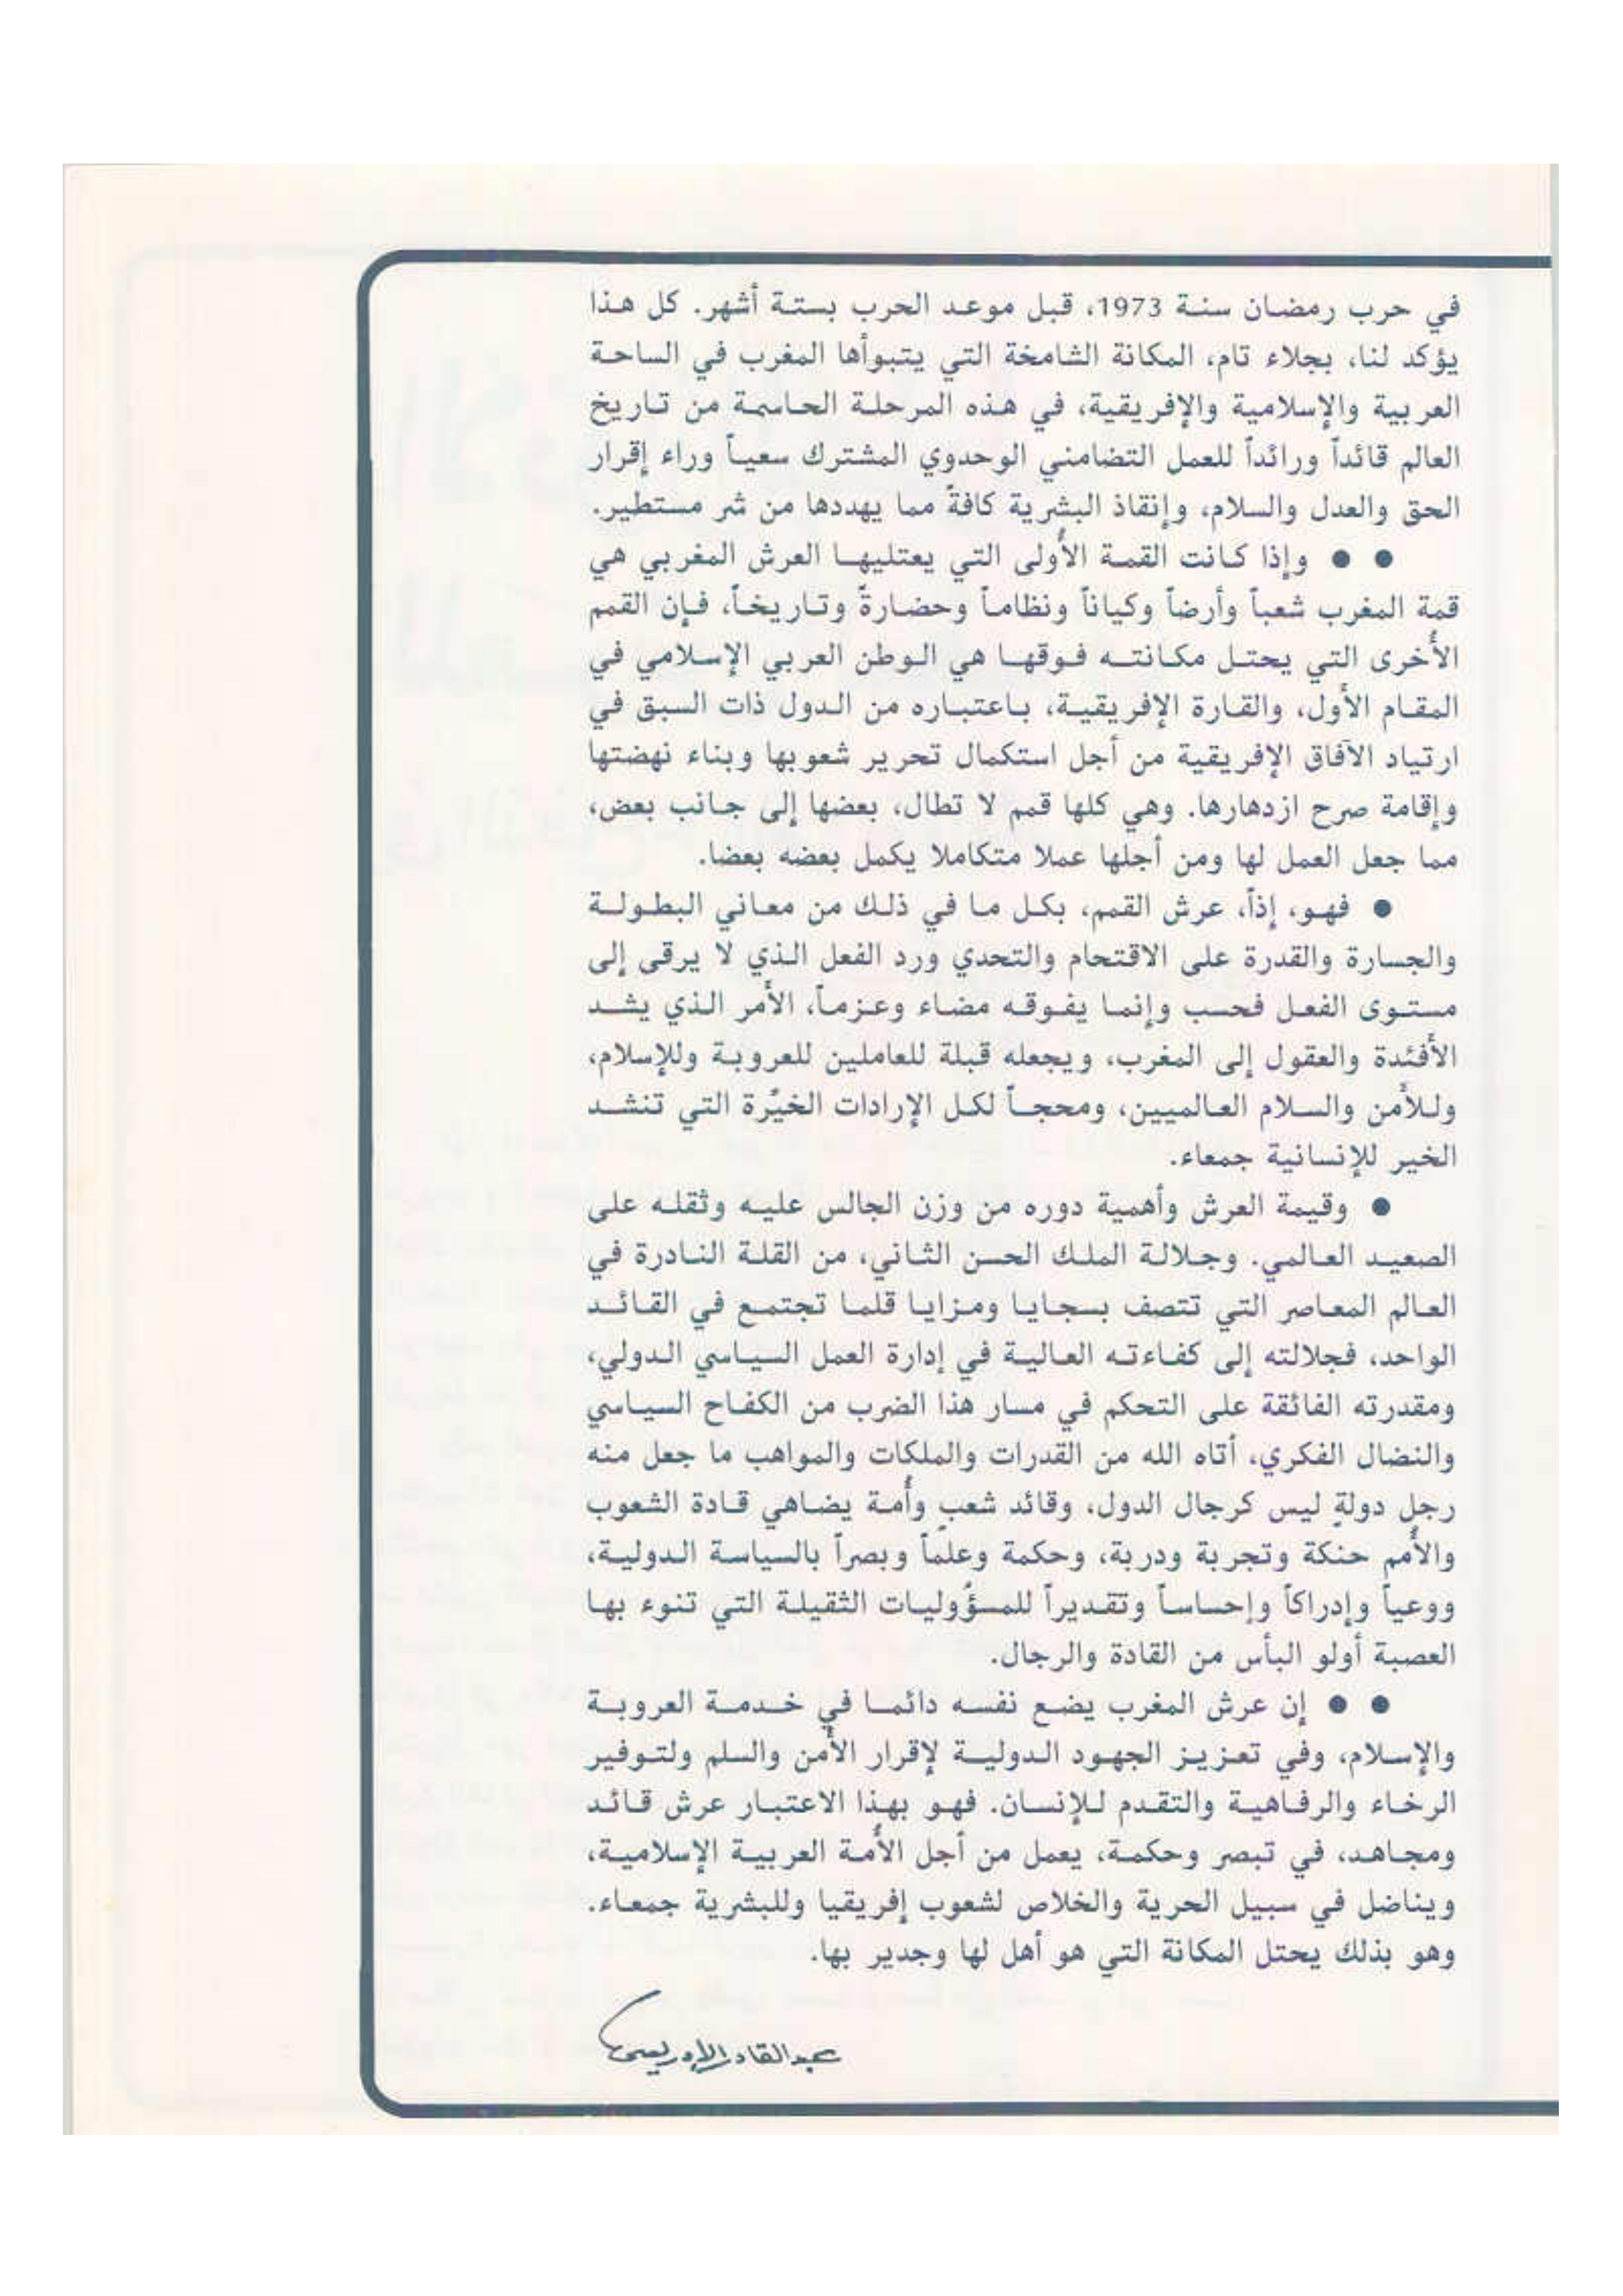 في حرب رمضان سنة 1973، قبل موعد الحرب بستة أشهر. كل هذا
يؤكد لنا، بجلاء تام، المكانة الشامخة التي يتبوأها المغرب في الساحة
العربية والإسلامية والإفريقية، في هذه المرحلة الحاسمة من تاريخ
العالم قائداً ورائداً للعمل التضامني الوحدوي المشترك سعياً وراء إقرار
الحق والعدل والسلام، وإنقاذ البشرية كافةً مما يهددها من شر مستطير.
● ● وإذا كانت القمة الأولى التي يعتليها العرش المغربي هي
قمة المغرب شعباً وأرضاً وكياناً ونظاماً وحضارةً وتاريخاً، فإن القمم
الأخرى التي يحتل مكانته فوقها هي الوطن العربي الإسلامي في
المقام الأول، والقارة الإفريقية، باعتباره من الدول ذات السبق في
ارتياد الآفاق الإفريقية من أجل استكمال تحرير شعوبها وبناء نهضتها
وإقامة صرح ازدهارها. وهي كلها قمم لا تطال، بعضها إلى جانب بعض،
مما جعل العمل لها ومن أجلها عملا متكاملا يكمل بعضه بعضا.
● فهو، إذاً، عرش القمم، بكل ما في ذلك من معاني البطولة
والجسارة والقدرة على الاقتحام والتحدي ورد الفعل الذي لا يرقى إلى
مستوى الفعل فحسب وإنما يفوقه مضاء وعزماً، الأمر الذي يشد
الأفئدة والعقول إلى المغرب، ويجعله قبلة للعاملين للعروبة وللإسلام،
وللأمن والسلام العالميين، ومحجاً لكل الإرادات الخيّرة التي تنشد
الخير للإنسانية جمعاء.
● وقيمة العرش وأهمية دوره من وزن الجالس عليه وثقله على
الصعيد العالمي. وجلالة الملك الحسن الثاني، من القلة النادرة في
العالم المعاصر التي تتصف بسجايا ومزايا قلما تجتمع في القائد
الواحد، فجلالته إلى كفاءته العالية في إدارة العمل السياسي الدولي،
ومقدرته الفائقة على التحكم في مسار هذا الضرب من الكفاح السياسي
والنضال الفكري، أتاه الله من القدرات والملكات والمواهب ما جعل منه
رجل دولةٍ ليس كرجال الدول، وقائد شعبٍ وأمة يضاهي قادة الشعوب
والأمم حنكة وتجربة ودربة، وحكمة وعلماً وبصراً بالسياسة الدولية،
ووعياً وإدراكاً وإحساساً وتقديراً للمسؤوليات الثقيلة التي تنوء بها
العصبة أولو البأس من القادة والرجال.
● ● إن عرش المغرب يضع نفسه دائما في خدمة العروبة
والإسلام، وفي تعزيز الجهود الدولية لإقرار الأمن والسلم ولتوفير
الرخاء والرفاهية والتقدم للإنسان. فهو بهذا الاعتبار عرش قائد
ومجاهد، في تبصر وحكمة، يعمل من أجل الأمة العربية الإسلامية،
ويناضل في سبيل الحرية والخلاص لشعوب إفريقيا وللبشرية جمعاء.
وهو بذلك يحتل المكانة التي هو أهل لها وجدير بها.
عبد القادر الإدريسي